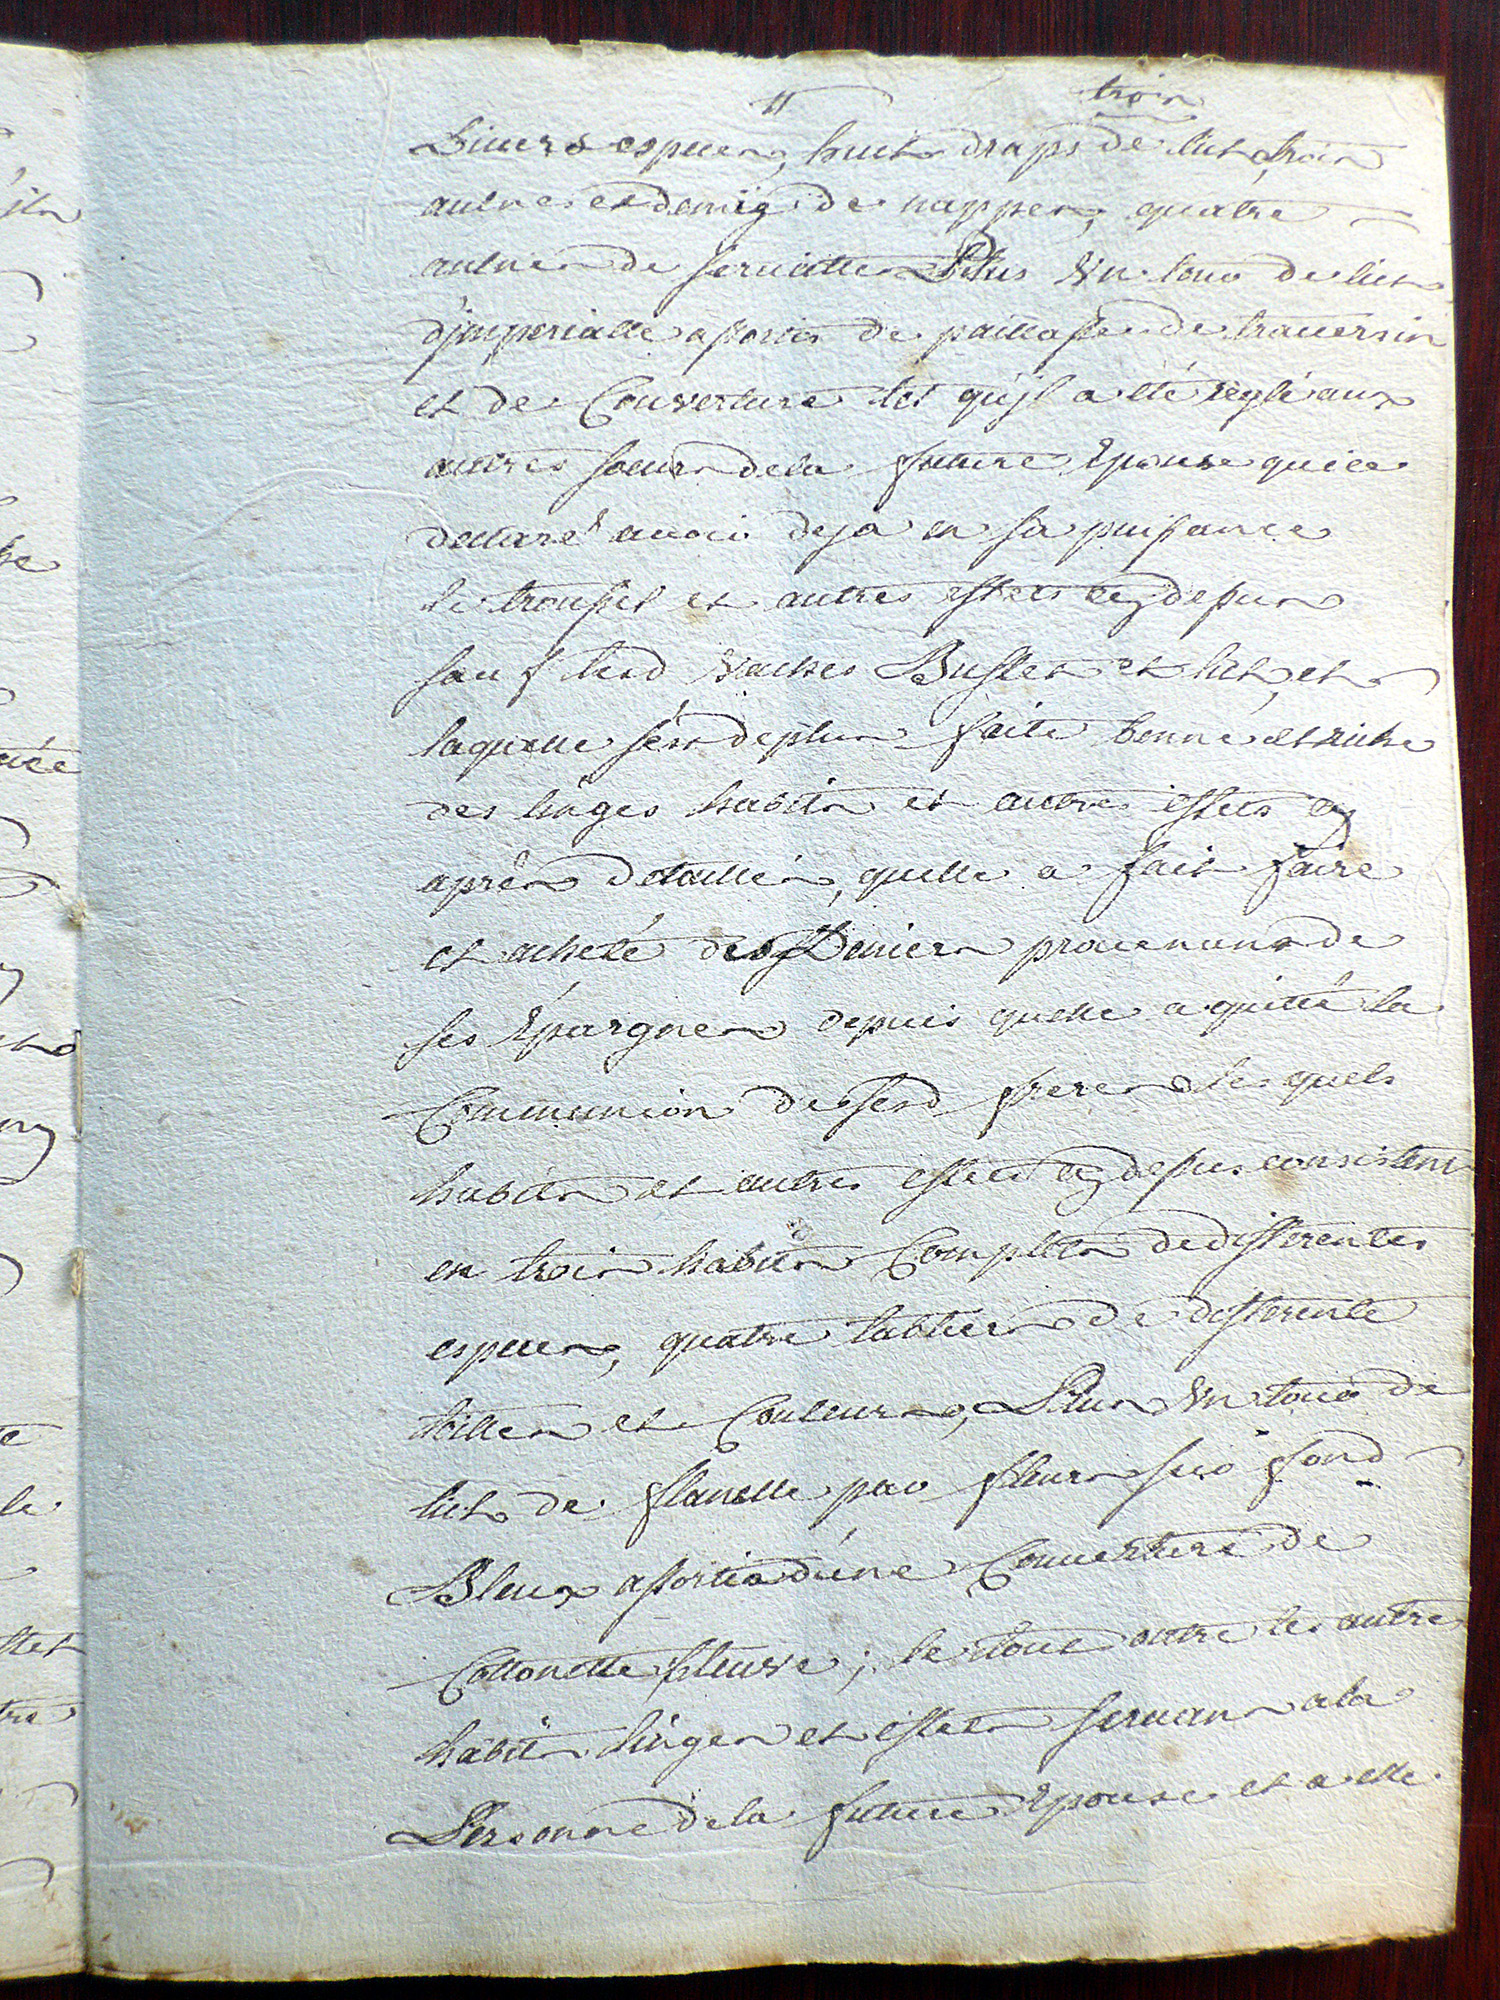 trois
Divers especes, huit draps de lict, trois
aulnes et demÿ de nappes, quatre
aulnes de serviettes Plus Un tour de lict
d'jmperialle assortis de paillasse de traversin
et de Couverture tel qu'jl a été réglé aux
autres soeurs de la future Epouse qui a
declaré avoir deja en sa puissance
le troussel et autres effets cÿ dessus
sauf lesd Vaches Buffet et lict, et
laquelle s'est deplus faite bonne et riche
des linges habits et autres effets cÿ
après détaillés, quelle a fait faire
et acheté des Deniers provenans de
ses Epargnes depuis quelle a quitté la
Communion de sesd freres Lesquels
habits et autres effets cÿ dessus consistent
en trois habits Complets de differentes
especes, quatre tabliers de differente
toilles et Couleurs, Plus Un tour de
lict de flanelle par fleurs sur fond
Bleux assortis d'une Couverture de
Cottonette fleurée; le tout outre les autres
habits linges et effets servans a la
Personne de la future Epouse et a elle